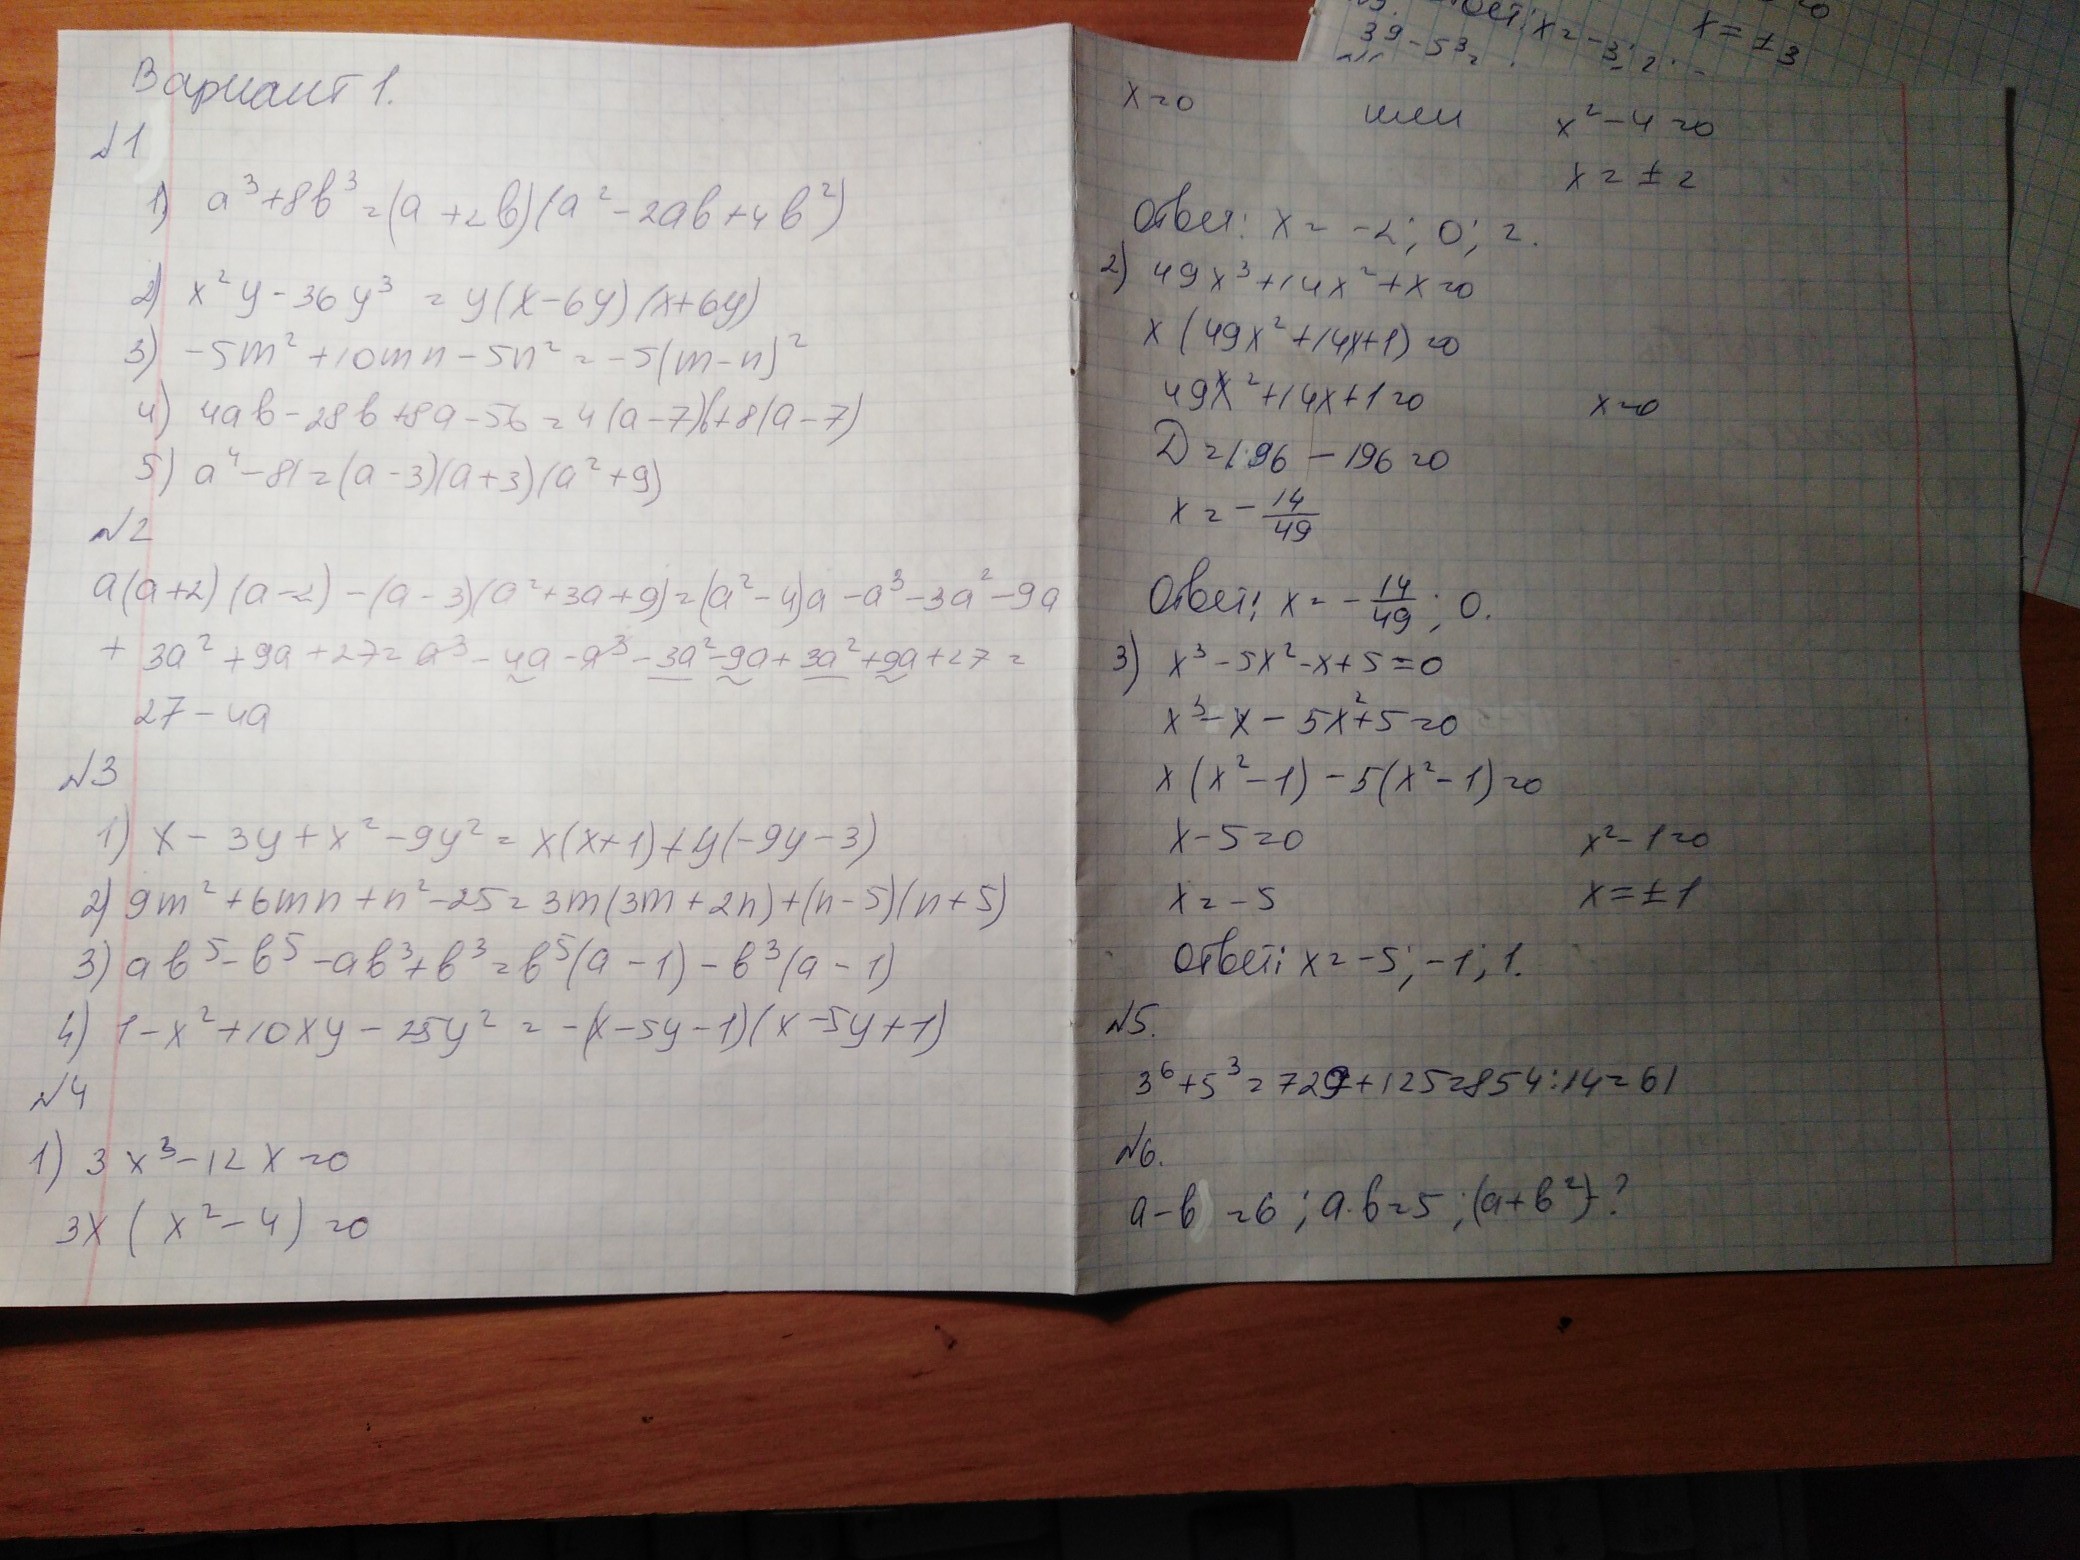 Вариант 1.
№1
1) a³+8b³=(a+2b)(a²-2ab+4b²)
2) x²y-36y³=y(x-6y)(x+6y)
3) -5m²+10mn-5n²=-5(m-n)²
4) 4ab-28b+8a-56=4(a-7)b+8(a-7)
5) a⁴-81=(a-3)(a+3)(a²+9)
№2
a(a+2)(a-2)-(a-3)(a²+3a+9)=(a²-4)a-a³-3a²-9a
+3a²+9a+27=a³-4a-a³-3a²-9a+3a²+9a+27=
27-4a
№3
1) x-3y+x²-9y²=x(x+1)+y(-9y-3)
2) 9m²+6mn+n²-25=3m(3m+2n)+(n-5)(n+5)
3) ab⁵-b⁵-ab³+b³=b⁵(a-1)-b³(a-1)
4) 1-x²+10xy-25y²=-(x-5y-1)(x-5y+1)
№4
1) 3x³-12x=0
3x(x²-4)=0
x=0 или x²-4=0
x=±2
Ответ: x=-2; 0; 2.
2) 49x³+14x²+x=0
x(49x²+14x+1)=0
49x²+14x+1=0 x=0
D=196-196=0
x=-14/49
Ответ: x=-14/49; 0.
3) x³-5x²-x+5=0
x³-x-5x²+5=0
x(x²-1)-5(x²-1)=0
x-5=0 x²-1=0
x=-5 x=±1
Ответ: x=-5; -1; 1.
№5.
3⁶+5³=729+125=854:14=61
№6.
a-b)=6; a·b=5; (a+b²)-?
x=±3
x=-3;
39-5³=